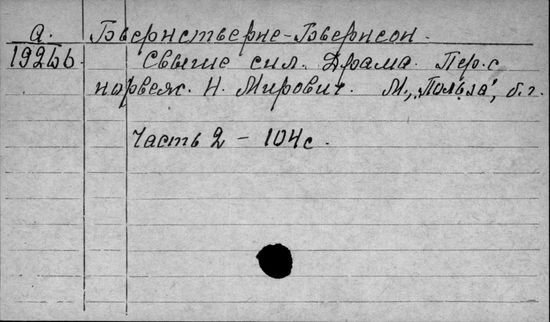 Q. Бьернстьерне-Бьернсон.
1926ьь Свыше сил. Драма. Пер. с
норвеж. Н. Мирович. М., „Польза", б. г.
Часть 2 – 104 с.